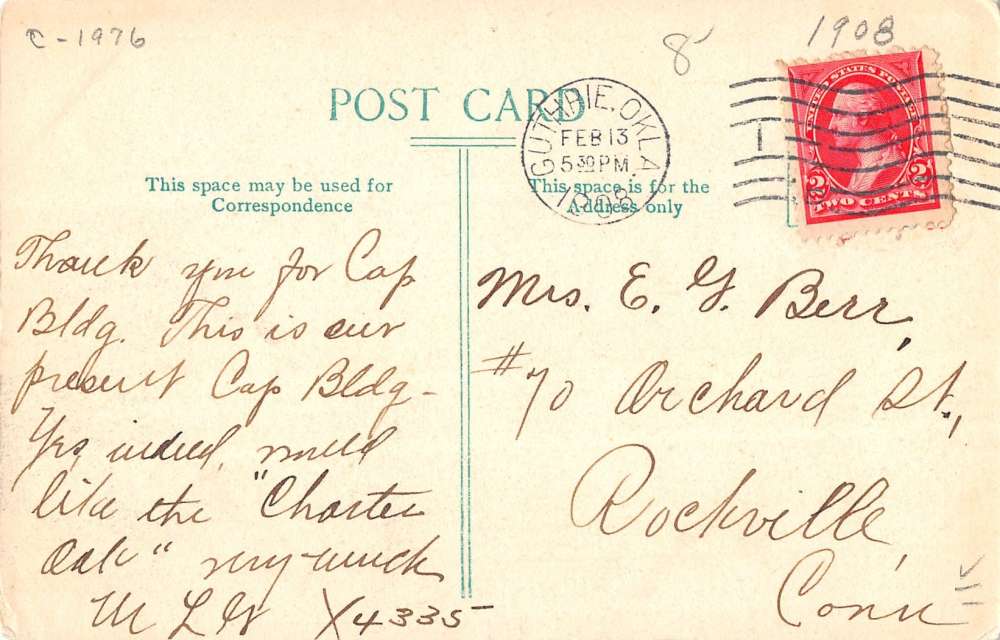 C-1976
8
1908
POST CARD
GUTHRIE, OKLA.
FEB 13
5 30 PM
1908
1
UNITED STATES POSTAGE
2 2
TWO CENTS
This space may be used for
Correspondence
This space is for the
Address only
Thank you for Cap
Bldg. This is our
present Cap Bldg -
Yes, indeed, would
like the "Charter
Oak" very-much
M L W X4335
Mrs. E. G. Berr,
#70 Orchard St.,
Rockville,
Conn